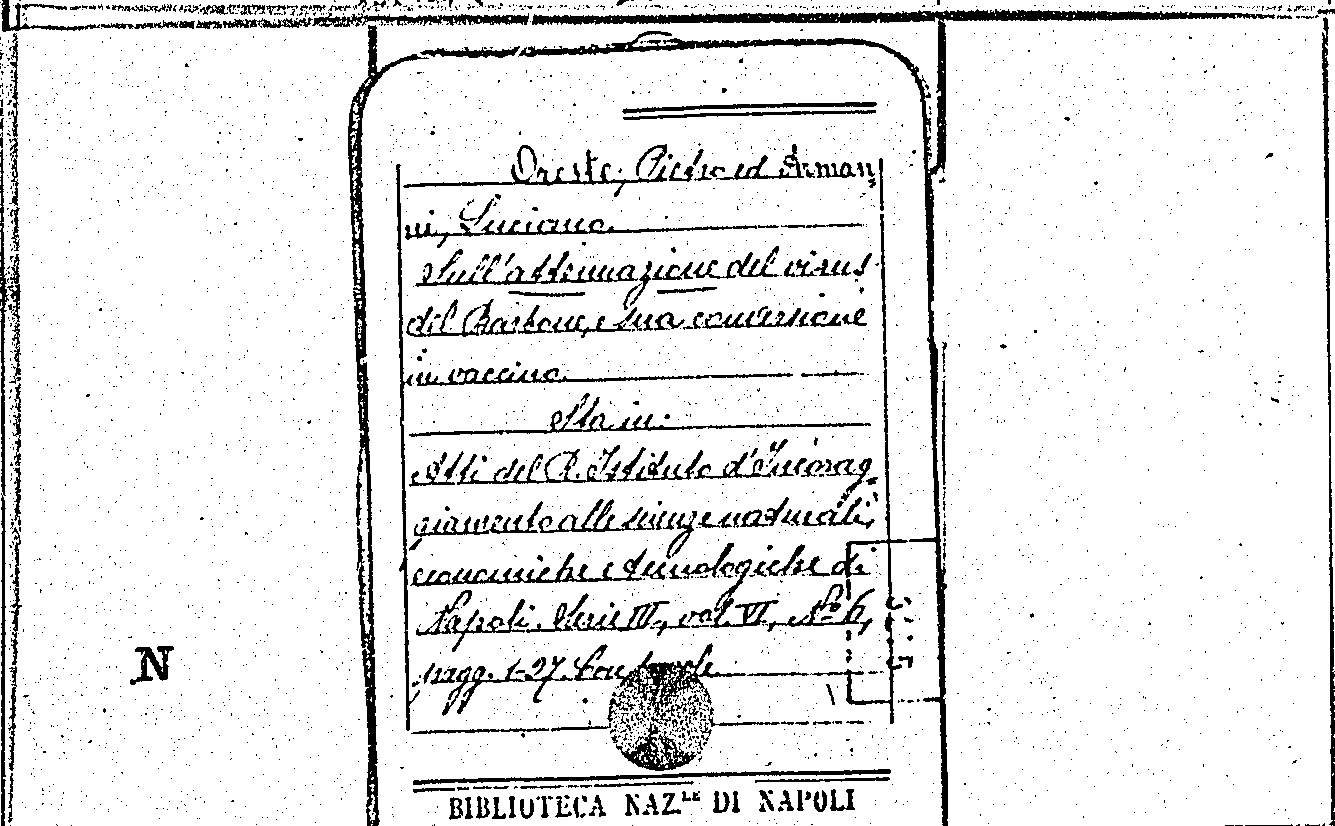 Oreste, Pietro ed Arman
ni, Luciano.
Sull'attenuazione del virus
del Barbone, e sua conversione
in vaccino.
Sta in:
Atti del R. Istituto d'Incorag
giamento alle scienze naturali,
economiche e tecnologiche di
Napoli. Serie III, vol. VI, No 6,
pagg. 1-27. Con tavole
N
BIBLIOTECA NAZLE DI NAPOLI